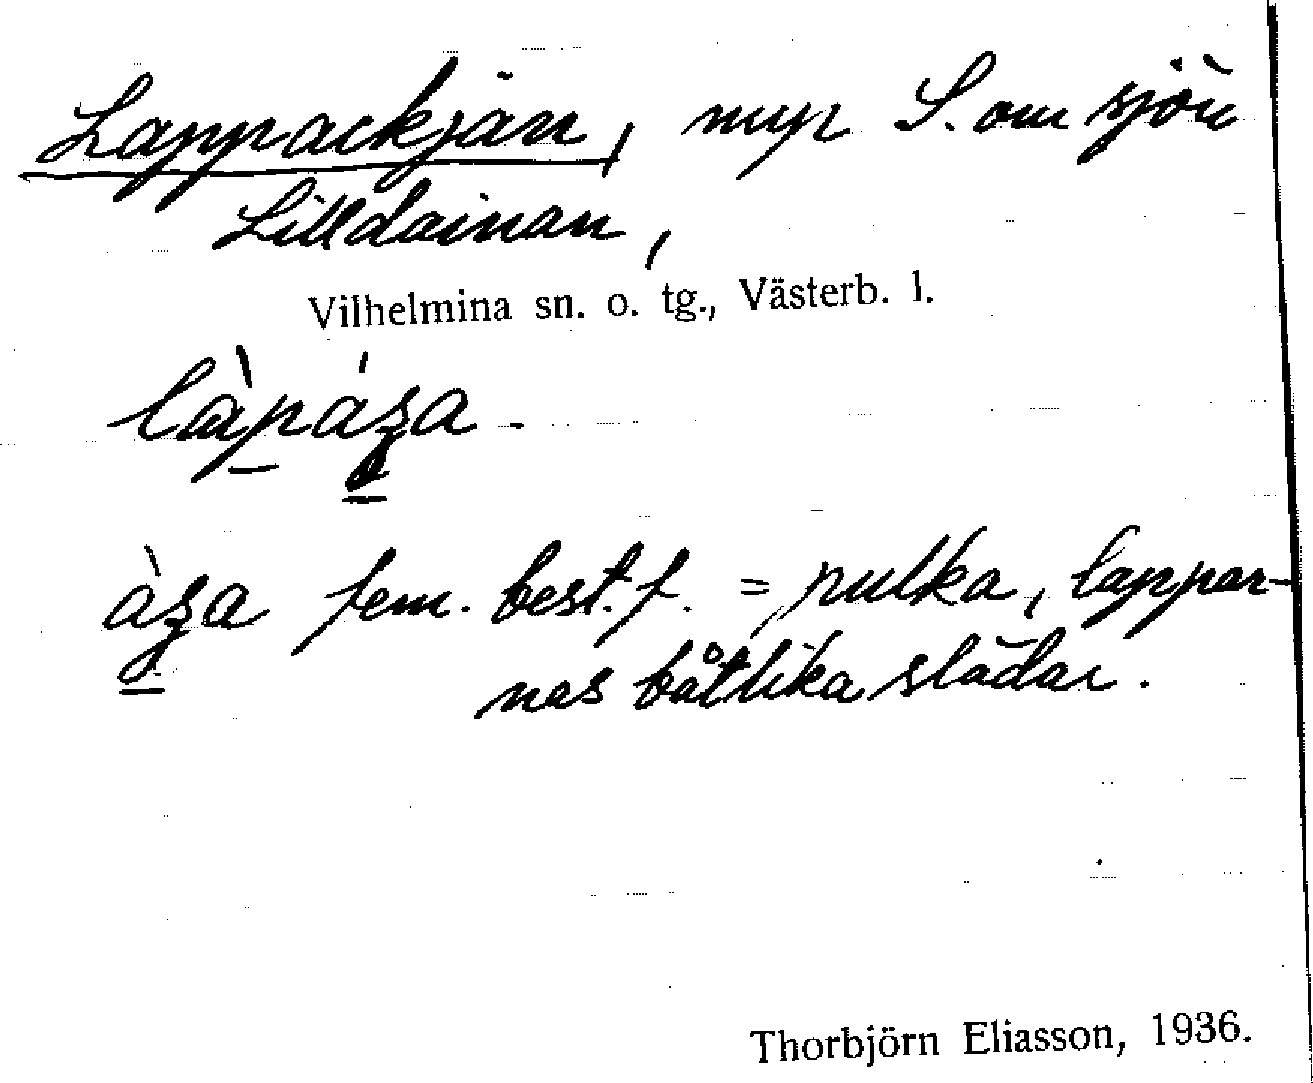 Lappackjän, myr S. om sjön
Lilldainan,
Vilhelmina sn. o. tg., Västerb. l.
fem. best. f. = pulka, lappar-
nas båtlika slädar.
Thorbjörn Eliasson, 1936.